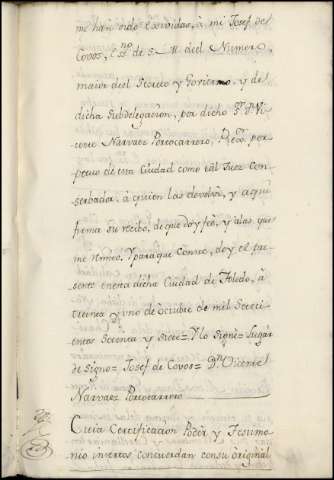 me han sido exividas, à mi Josef de
Covos, es.no de S. M. del Numer.
maior del Secreto y Govierno, y de
dicha Subdelegacion, por dicho S.r D.n Vi
cente Narvaez Portocarrero, Rex.or per
petuo de esta Ciudad como tál Juez Con
serbador, à quien las devolvi, y aqui
firma su recibo, de que doy feè, y à las que
me remito, Y para que conste, doy el pre
sente en esta dicha Ciudad de Toledo, à
treinta y uno de octubre de mil Setecie
entas Setenta y Siete= Y lo Signè= Lugar
de Signo= Josef de Covos= D.n Vicente
Narvaez Portocarrero
Cuia Certificacion Podèr y Testimo
nio incertos concuerdan con su original